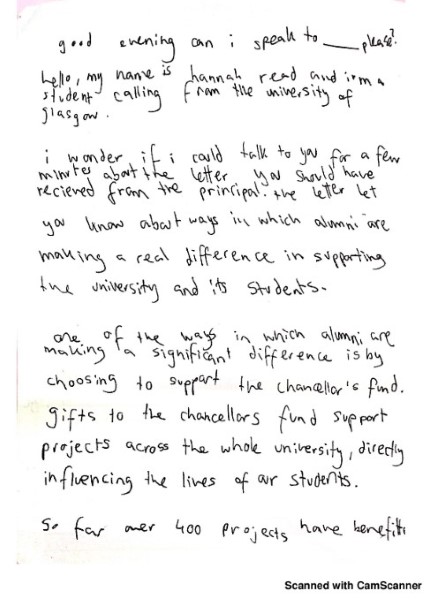 good evening can i speak to ___ please?
hello, my name is hannah read and i'm a
student calling from the university of
glasgow.
i wonder if i could talk to you for a few
minutes about the letter you should have
recieved from the principal. the letter let
you know about ways in which alumni are
making a real difference in supporting
the university and its students.
one of the ways in which alumni are
making a significant difference is by
choosing to support the chancellor's fund.
gifts to the chancellors fund support
projects across the whole university, directly
influencing the lives of our students.
So far over 400 projects have benefiti
Scanned with CamScanner